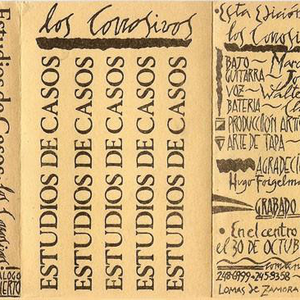 Estudios de Casos los Corrosivos
los Corrosivos
ESTUDIOS DE CASOS
ESTUDIOS DE CASOS
ESTUDIOS DE CASOS
ESTUDIOS DE CASOS
ESTUDIOS DE CASOS
Esta Edición
los Corrosivos
BAJO ~ Marc
GUITARRA
VOZ ~ Walte
BATERIA ~
PRODUCCION ARTIS
ARTE DE TAPA
AGRADECI
Hugo Foigelm
GRABADO
En el centro
el 30 DE OCTUB
LOMAS DE ZAMORA